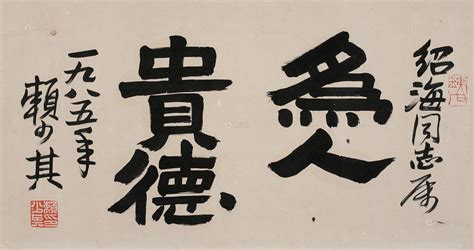 紹海同志屬
為人
貴德
一九八五年
賴少其